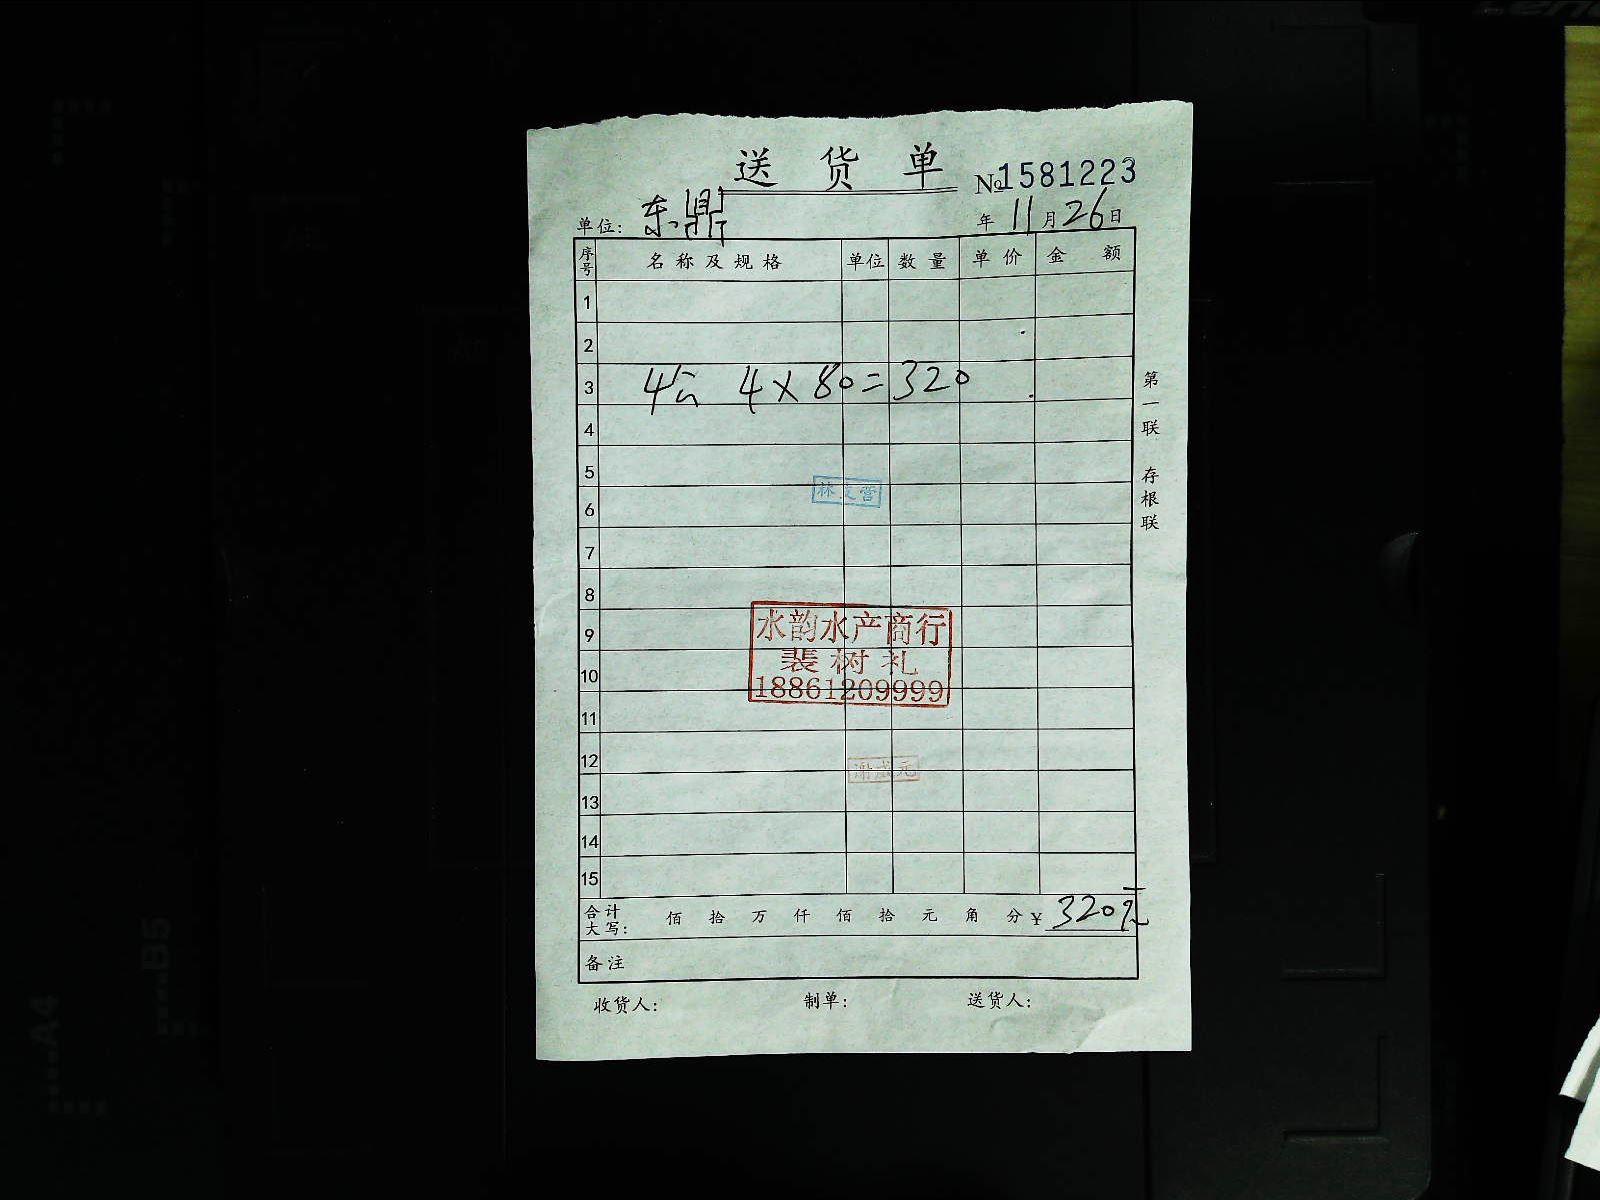 送货单
№1581223
单位：东鼎
年 11月26日
序号 名称及规格 单位 数量 单价 金额
1
2
3 4公 4×80=320
4
5
6
7
8
9
10
11
12
13
14
15
林文营
水韵水产商行
裴树礼
18861209999
谢成元
合计大写： 佰 拾 万 仟 佰 拾 元 角 分 ¥ 320元
备注
收货人： 制单： 送货人：
第一联 存根联
A4
B5